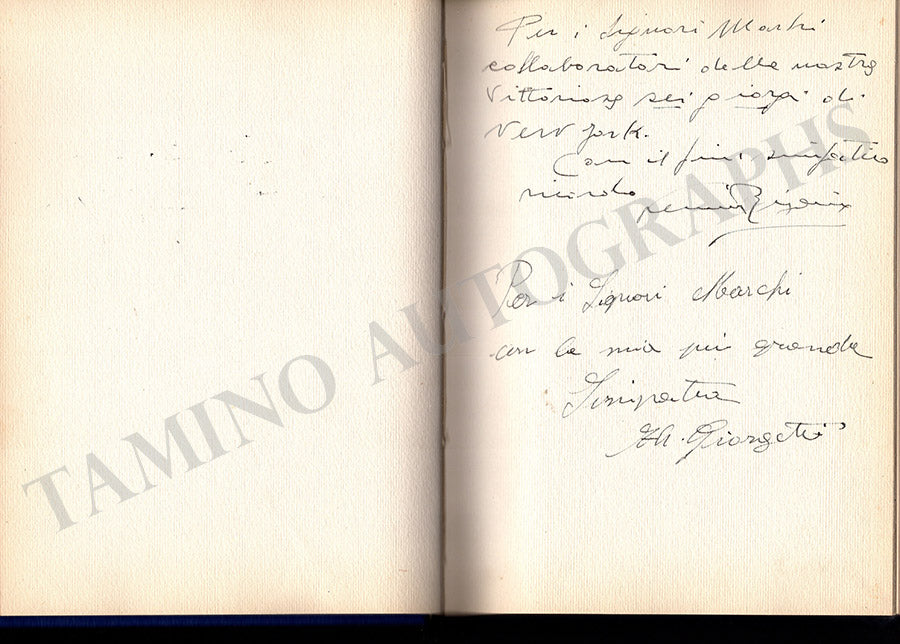 Per i Signori Marchi
collaboratori della nostra
Vittoriosa sei giorni di
New York.
Con il più simpatico
ricordo
Per i Signori Marchi
con la mia più grande
Simpatia
Giorgetti
TAMINO AUTOGRAPHS